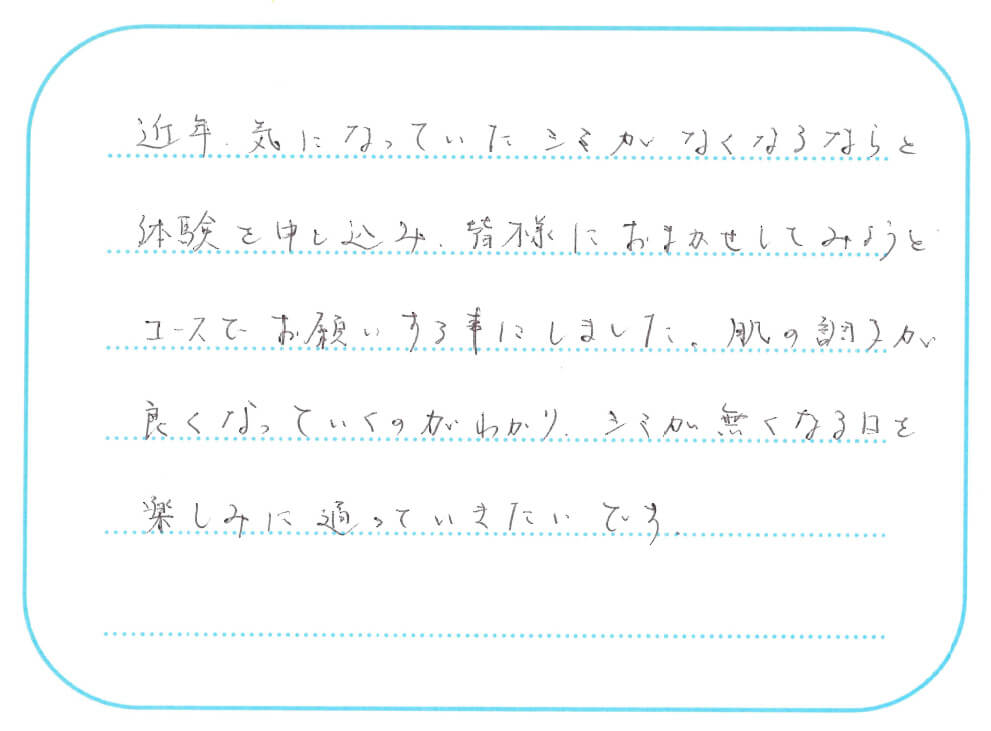 近年、気になっていたシミがなくなるならと
体験を申し込み、皆様におまかせしてみようと
コースでお願いする事にしました。肌の調子が
良くなっていくのがわかり、シミが無くなる日を
楽しみに通っていきたいです。